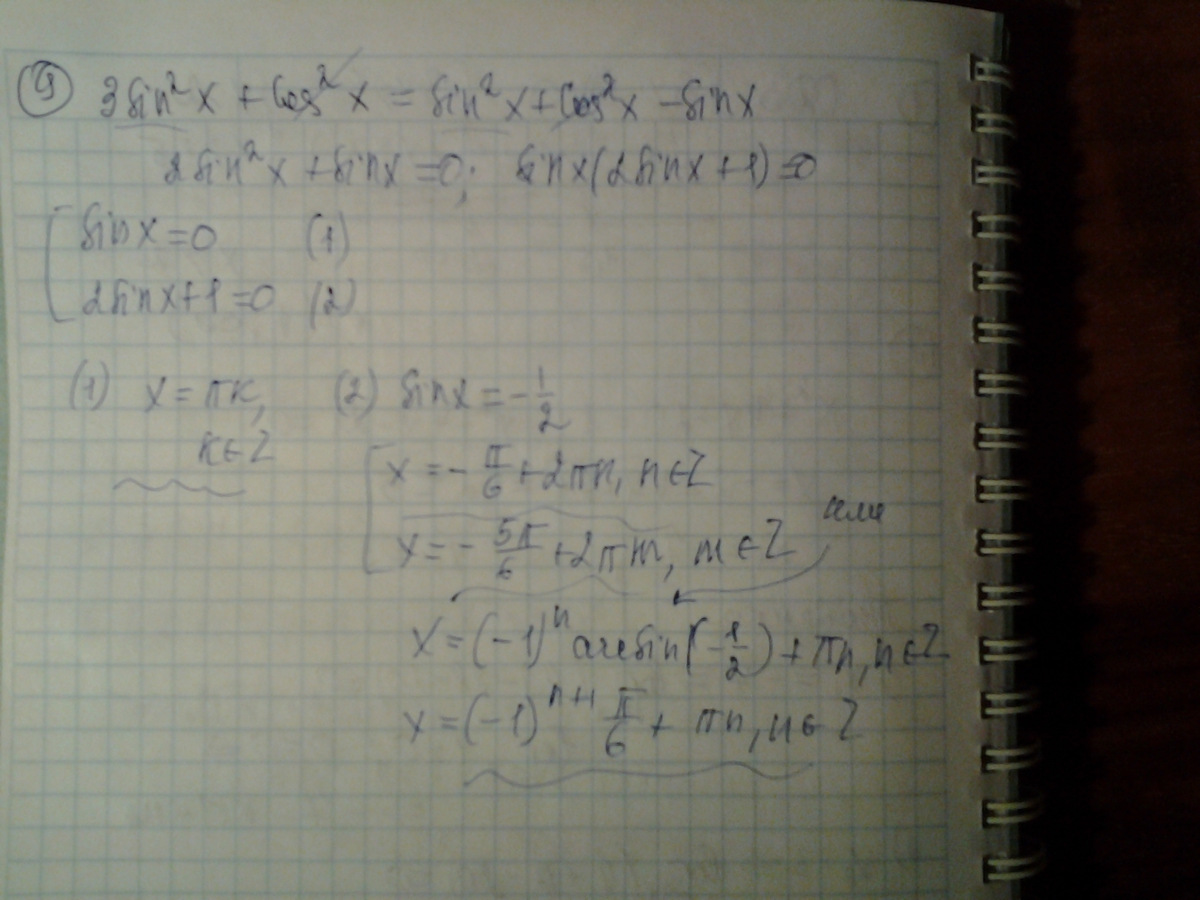 9 3sin²x + cos²x = sin²x + cos²x - sinx
2sin²x + sinx = 0; sinx(2sinx + 1) = 0
sinx = 0 (1)
2sinx + 1 = 0 (2)
(1) x = πk, (2) sinx = -1/2
k ∈ Z
x = -π/6 + 2πn, n ∈ Z
или
x = -5π/6 + 2πm, m ∈ Z
x = (-1)ⁿ arcsin(-1/2) + πn, n ∈ Z
x = (-1)ⁿ⁺¹ π/6 + πn, n ∈ Z